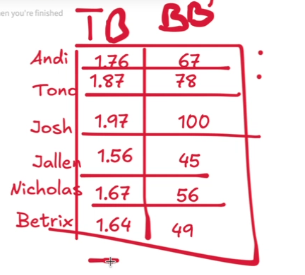 en you're finished
TB BB
Andi 1.76 67
Tono 1.87 78
Josh 1.97 100
Jallen 1.56 45
Nicholas 1.67 56
Betrix 1.64 49